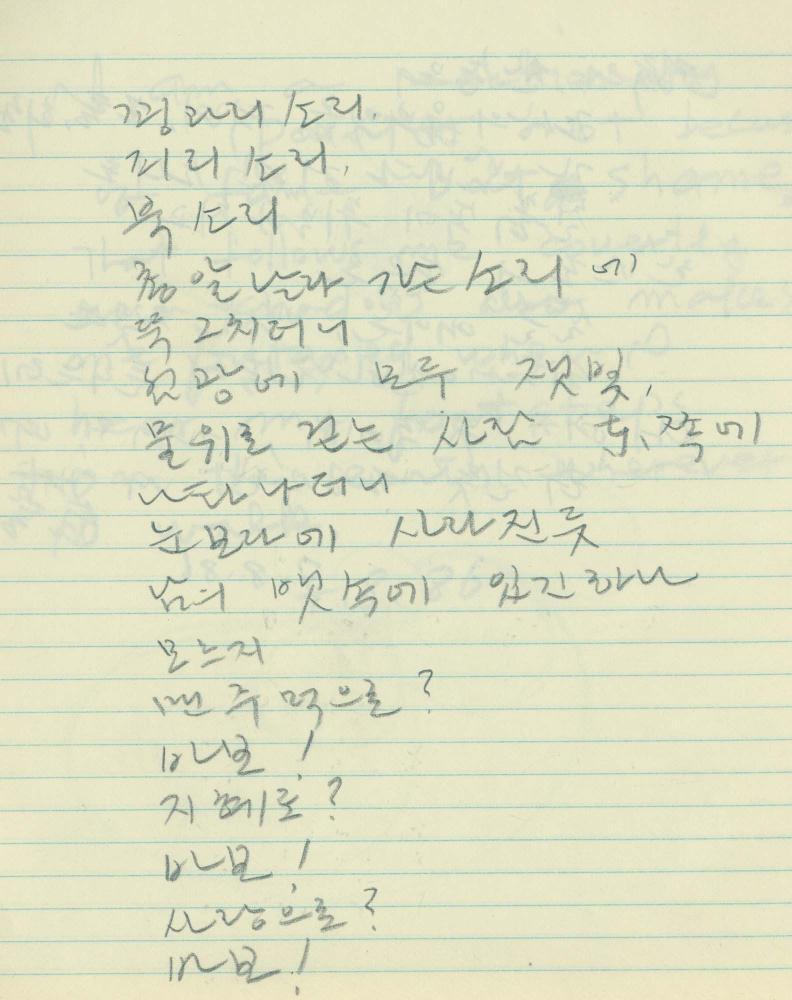 꽹과리 소리.
피리 소리,
북 소리
총알 날라 가는 소리에
뚝 그치더니
천광에 모두 잿빛,
물위로 걷는 사람 동,쪽에
나타나더니
눈보라에 사라진듯
남의 뱃속에 있긴 하나
모르지
맨 주먹으로?
바보!
지혜로?
바보!
사랑으로?
바보!